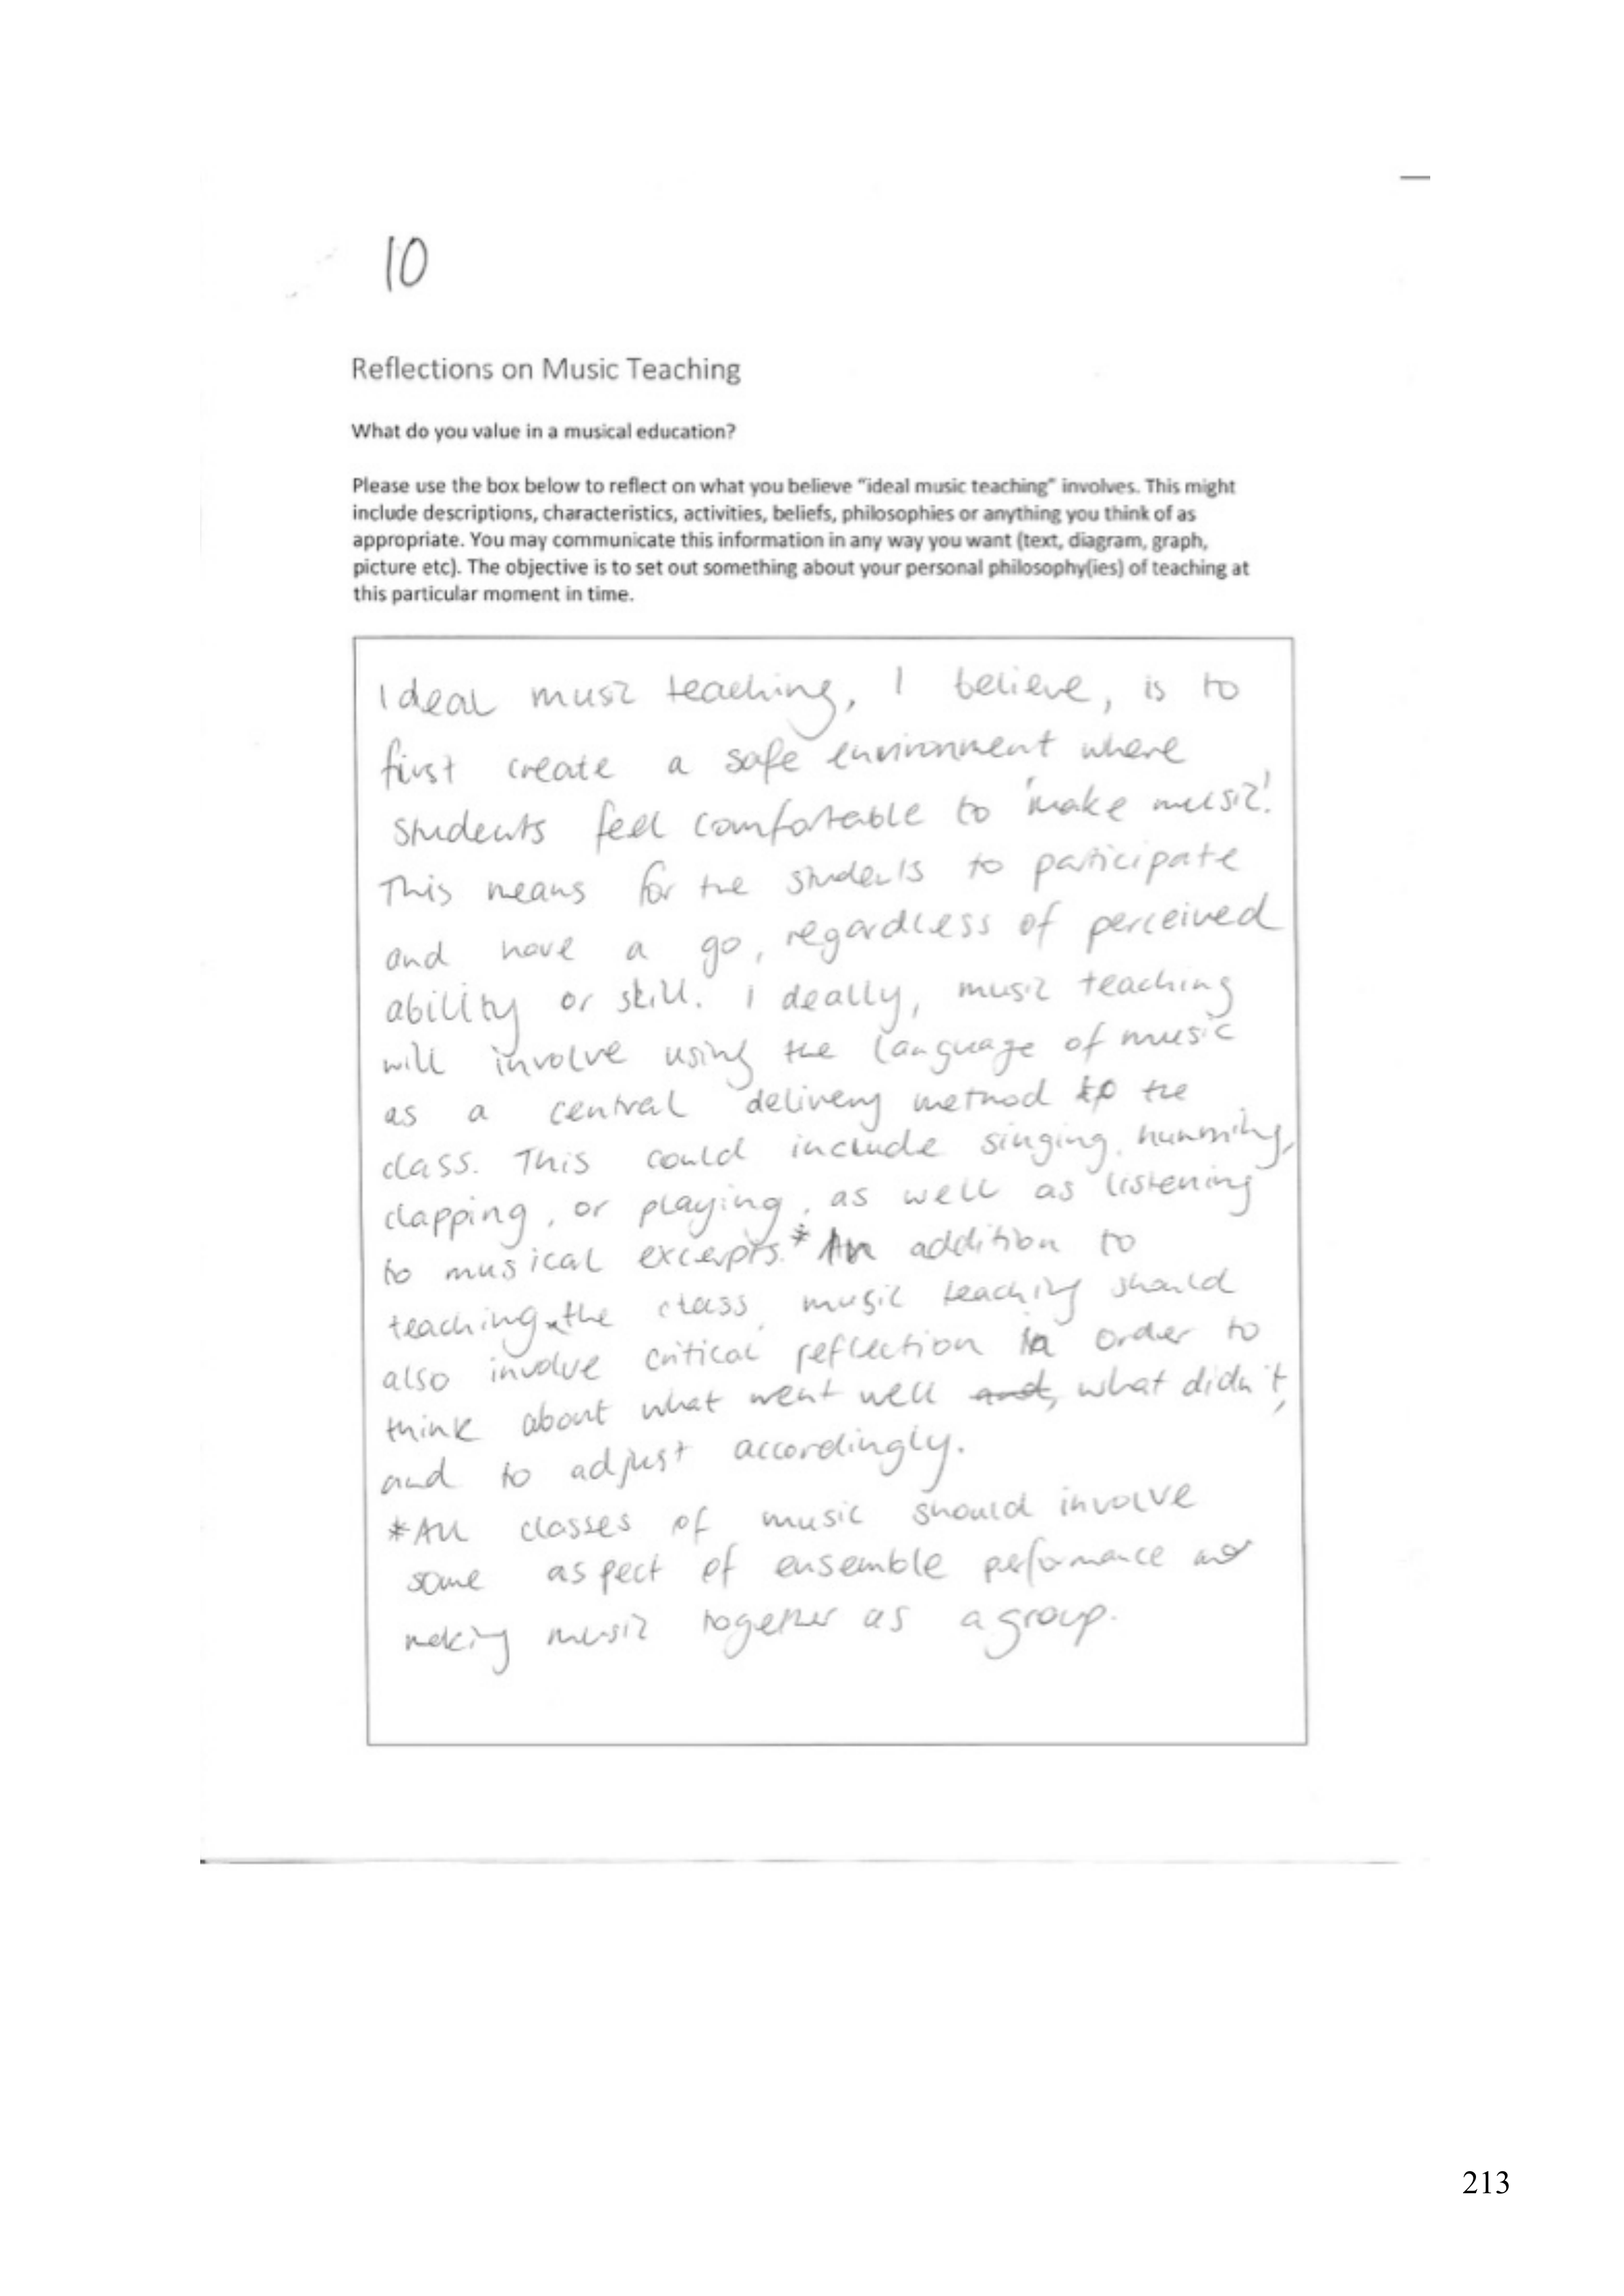 10
Reflections on Music Teaching
What do you value in a musical education?
Please use the box below to reflect on what you believe "ideal music teaching" involves. This might
include descriptions, characteristics, activities, beliefs, philosophies or anything you think of as
appropriate. You may communicate this information in any way you want (text, diagram, graph,
picture etc). The objective is to set out something about your personal philosophy(ies) of teaching at
this particular moment in time.
Ideal music teaching, I believe, is to
first create a safe environment where
students feel comfortable to 'make music'.
This means for the students to participate
and have a go, regardless of perceived
ability or skill. Ideally, music teaching
will involve using the language of music
as a central delivery method to the
class. This could include singing, humming,
clapping, or playing, as well as listening
to musical excerpts.* In addition to
teaching the class, music teaching should
also involve critical reflection in order to
think about what went well and, what didn't,
and to adjust accordingly.
*All classes of music should involve
some aspect of ensemble performance and
making music together as a group.
213